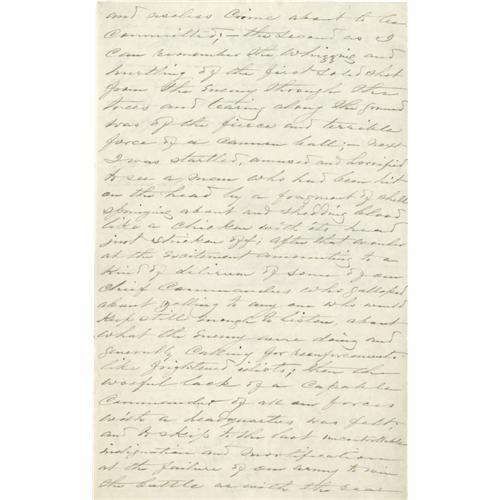 and useless crime about to be
committed; the second as I
can remember the whizzing and
hurtling of the first solid shot
from the enemy through the
trees and tearing along the ground
was of the fierce and terrible
force of a cannon ball; next
I was startled, amused and horrified
to see a man who had been hit
on the head by a fragment of shell
springing about and shedding blood
like a chicken with its head
just stricken off; after that wonder
at the excitement amounting to a
kind of delirium of some of our
chief commanders who galloped
about yelling to any one who would
keep still enough to listen, about
what the enemy were doing and
generally calling for reenforcements
like frightened idiots; then the
woeful lack of a capable
commander of all our forces
with a headquarters was felt
and to skip to the last uncontrollable
indignation and mortification
at the failure of our army to win
the battle as with the